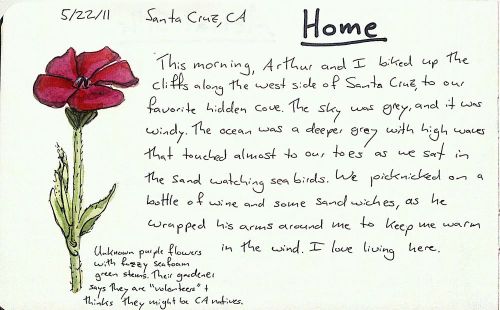 5/22/11 Santa Cruz, CA
Home
This morning, Arthur and I biked up the
cliffs along the west side of Santa Cruz, to our
favorite hidden cove. The sky was grey, and it was
windy. The ocean was a deeper grey with high waves
that touched almost to our toes as we sat in
the sand watching sea birds. We picknicked on a
bottle of wine and some sandwiches, as he
wrapped his arms around me to keep me warm
in the wind. I love living here.
Unknown purple flowers
with fuzzy seafoam
green stems. Their gardener
says they are "volunteers" +
thinks they might be CA natives.